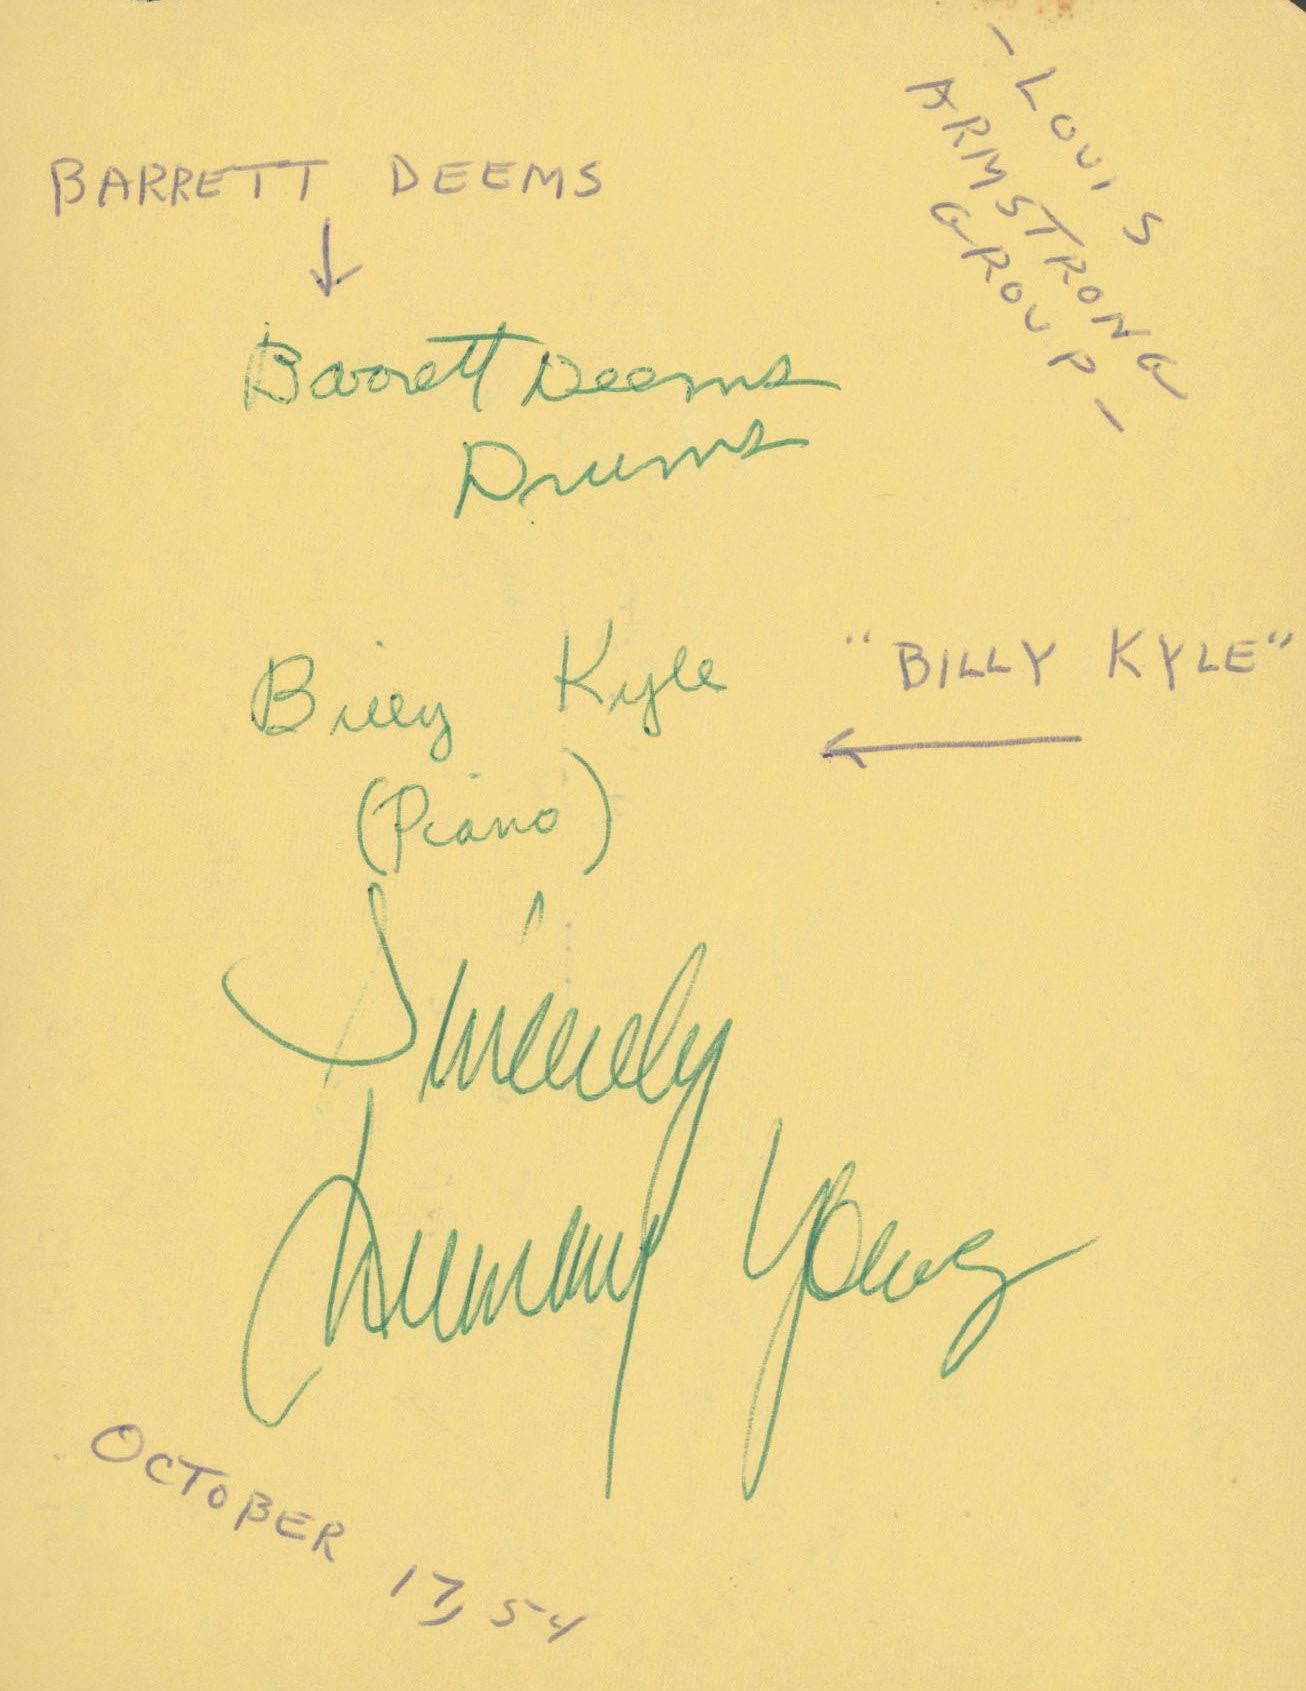 - LOUIS
ARMSTRONG
GROUP -
BARRETT DEEMS
Barrett Deems
Drums
Billy Kyle
"BILLY KYLE"
(Piano)
Sincerely
Trummy Young
OCTOBER 17, 54